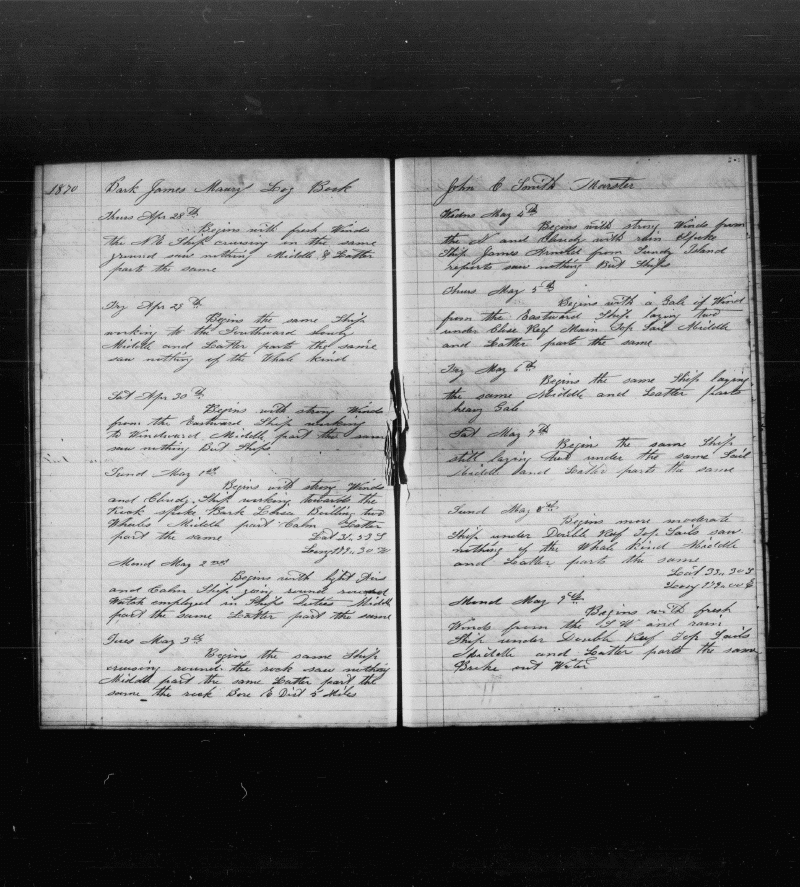 1870
Bark James Maury Log Book
Thurs Apr 28th
Begins with fresh Winds
the N E Ship cruising in the same
ground saw nothing Middle & Latter
parts the same
Fry Apr 29th
Begins the same Ship
working to the Southward slowly
Middle and Latter parts the same
saw nothing of the Whale kind
Sat Apr 30th
Begins with strong Winds
from the Eastward Ship working
to Windward Middle part the same
saw nothing But Ships
Sund May 1st
Begins with strong Winds
and Cloudy Ship working towards the
Rock spoke Bark Boilling two
Whales Middle part Calm Latter
part the same Lat 31.53 S
Long 179.30 W
Mond May 2nd
Begins with light Airs
and Calm Ship going round
Watch employed in Ships Duties Middle
part the same Latter part the same
Tues May 3th
Begins the same Ship
cruising round the rock saw nothing
Middle part the same Latter part the
same the rock Bore E Dist 5 Miles
John C Smith Marster
Wedns May 4th
Begins with strong Winds from
the N and Cloudy with rain Spoke
Ship James from Sundy Island
reports saw nothing But Ships
Thurs May 5th
Begins with a Gale of Wind
from the Eastward Ship laying two
under Close Reef Main Top Sail Middle
and Latter parts the same
Fry May 6th
Begins the same Ship laying
the same Middle and Latter parts
heavy Gale
Sat May 7th
Begin the same Ship
still laying two under the same Sail
Middle and Latter parts the same
Sund May 8th
Begins more moderate
Ship under Double Reef Top Sails saw
nothing of the Whale Kind Middle
and Latter parts the same
Lat 33.30 S
Long 179.00 E
Mond May 9th
Begins with fresh
Winds from the S W and rain
Ship under Double Reef Top Sails
Middle and Latter parts the same
Broke out Water